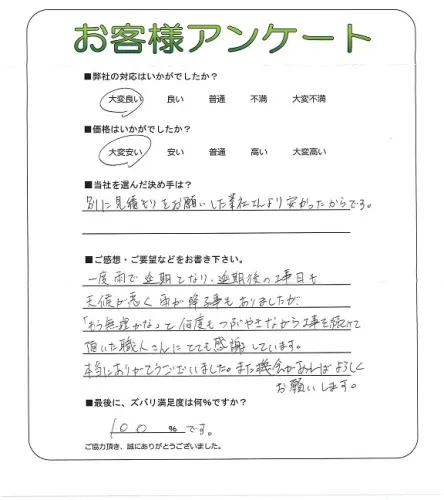 お客様アンケート
■弊社の対応はいかがでしたか？
大変良い 良い 普通 不満 大変不満
■価格はいかがでしたか？
大変安い 安い 普通 高い 大変高い
■当社を選んだ決め手は？
別に見積もりをお願いした業社さんより安かったからです。
■ご感想・ご要望などをお書き下さい。
一度雨で延期となり、延期後の工事日も
天候が悪く雨が降る事もありましたが、
「もう無理かな」と何度もつぶやきながら工事を続けて
頂いた職人さんにとても感謝しています。
本当にありがとうございました。また機会があればよろしく
お願いします。
■最後に、ズバリ満足度は何%ですか？
100 % です。
ご協力頂き、誠にありがとうございました。